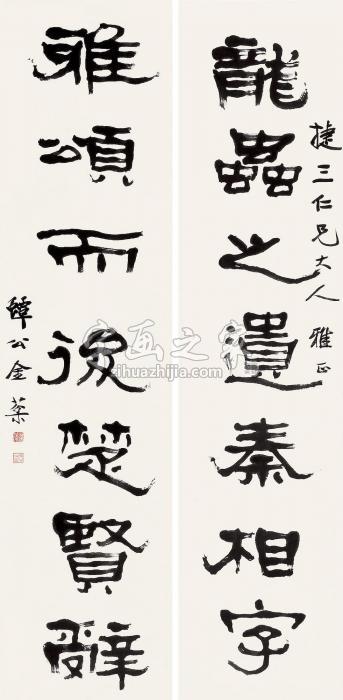 龍蟲之遺秦相字
捷三仁兄大人 雅正
雅頌而後楚賢辭
鞏公金棻
字画之家
zihuazhijia.com